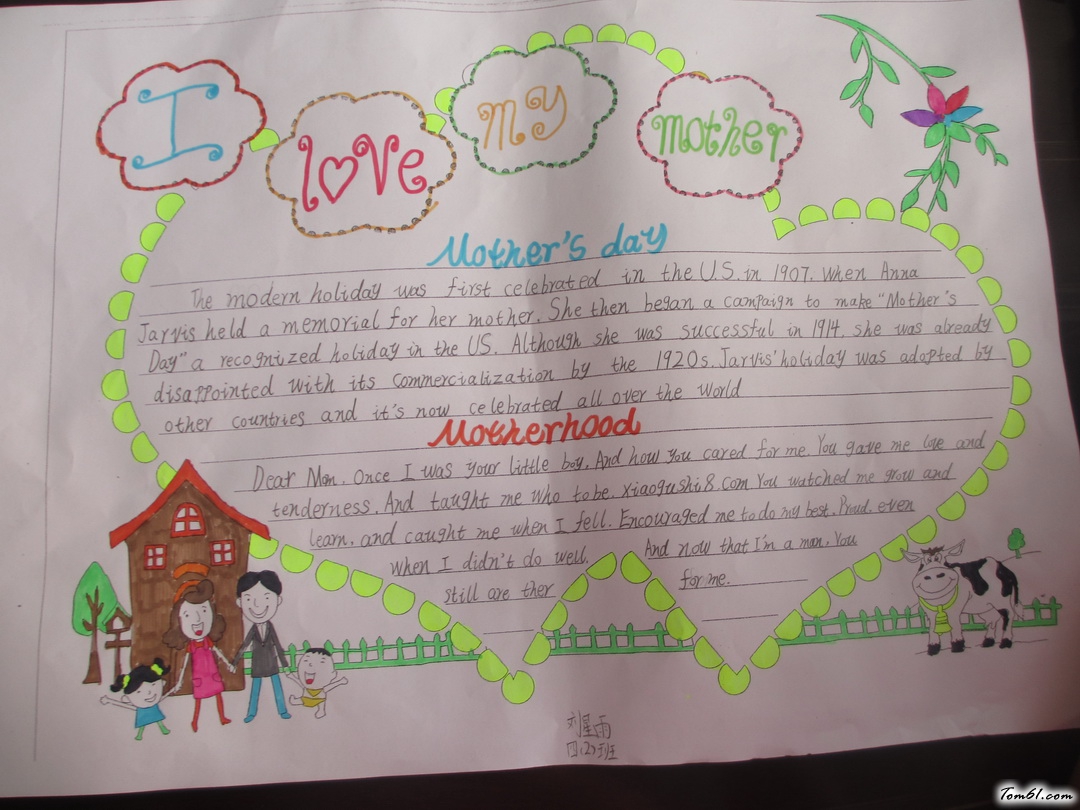 I love my mother
Mother's day
The modern holiday was first celebrated in the U.S. in 1907. when Anna
Jarvis held a memorial for her mother. She then began a campaign to make "Mother's
Day" a recognized holiday in the US. Although she was successful in 1914, she was already
disappointed with its commercialization by the 1920s. Jarvis' holiday was adopted by
other countries and it's now celebrated all over the world
Motherhood
Dear Mom. Once I was your little boy. And how you cared for me. You gave me love and
tenderness. And taught me who to be. xiaogushi8.com You watched me grow and
learn. and caught me when I fell. Encouraged me to do my best. Proud. even
when I didn't do well. And now that I'm a man. You
still are ther for me.
刘星雨
四(2)班
Tom61.com